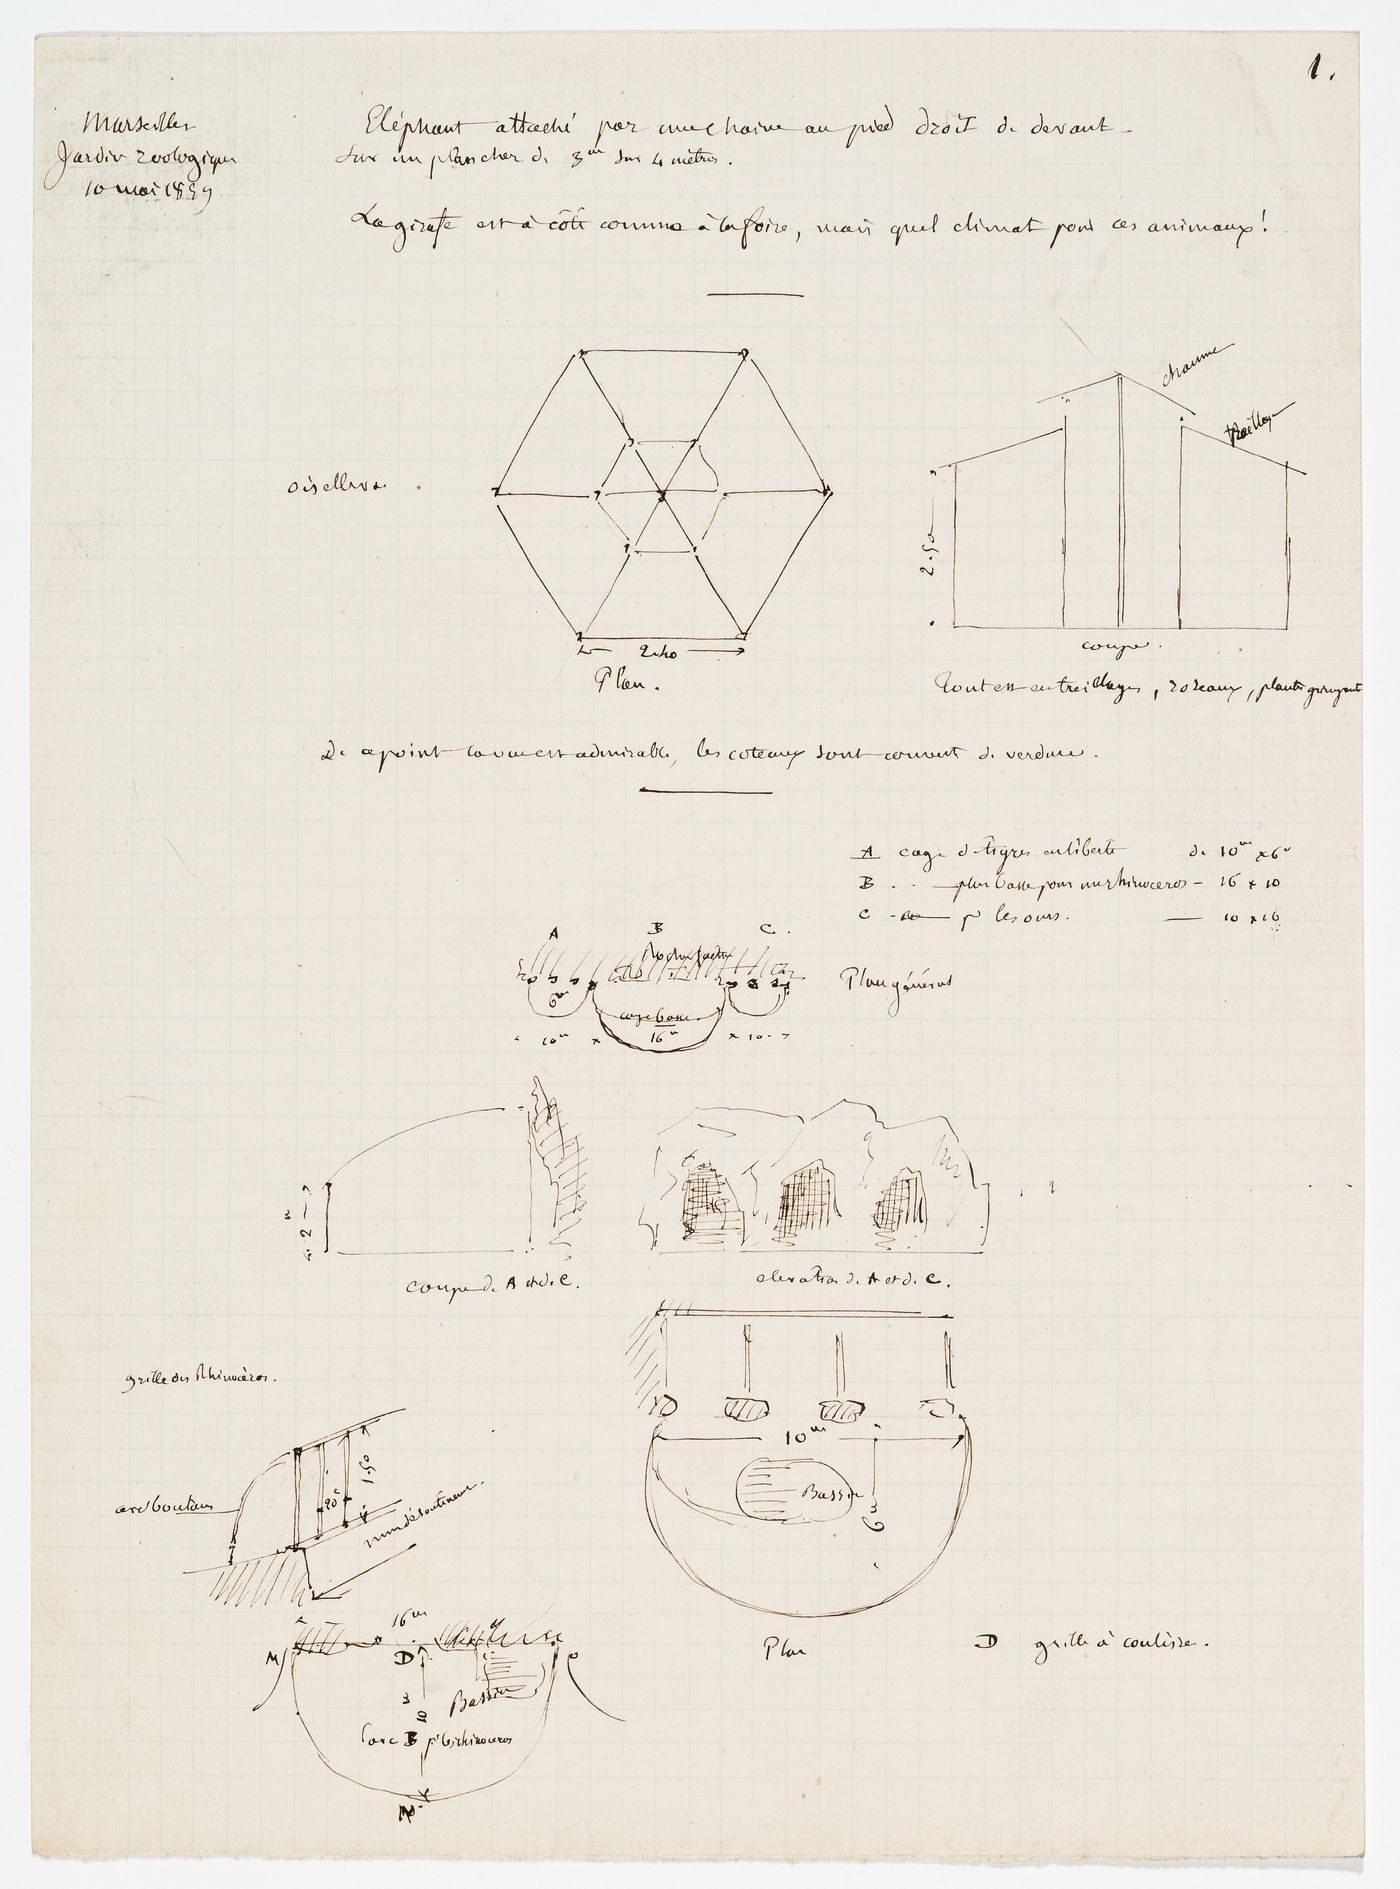 1.
Marseilles
Jardin zoologique
10 mai 1859
Eléphant attaché par une chaine au pied droit de devant
sur un plancher de 3m sur 4 mètres.
La girafe est à côté comme à la foire, mais quel climat pour ces animaux!
chaume
treillage
oisellerie
2.50
2.40
Plan.
coupe.
Tout est en treillages, roseaux, plantes grimpant
De ce point la vue est admirable, les coteaux sont couvert de verdure.
A cage de tigres en liberté de 10m x 6m
B .. plus basse pour un rhinoceros - 16 x 10
C pr les ours. 10 x 16
A B C.
Rocher
6m
cage basse
10m x 16m x 10
Plan général
2m
coupe de A et de C.
elevation de A et de C.
grille des Rhinocéros.
1.50
20c
arc boutans
mur de soutènement
10m
Bassin
6m
Plan
D grille à coulisse.
16m
M
D
10m
Bassin
Parc B pr les rhinoceros